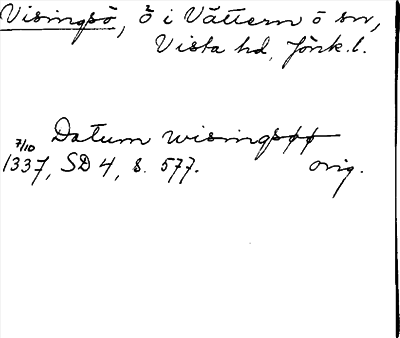 Visingsö, ö i Vättern o sn,
Vista hd, Jönk.l.
Datum wisingsøø
7/10
1337, SD 4, s. 577. orig.